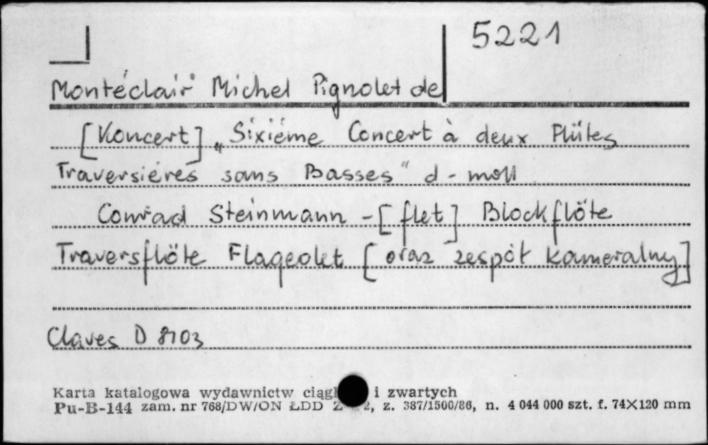 5221
Montéclair Michel Pignolet de
[Koncert] „Sixiéme Concert à deux Flûtes
Traversiéres sans Basses" d-moll
Conrad Steinmann - [flet] Blockflöte
Traversflöte Flageolet [oraz zespół kameralny]
Claves D 8103
Karta katalogowa wydawnictw ciągł i zwartych
Pu-B-144 zam. nr 768/DW/ON ŁDD Z 2, z. 387/1500/86, n. 4 044 000 szt. f. 74×120 mm